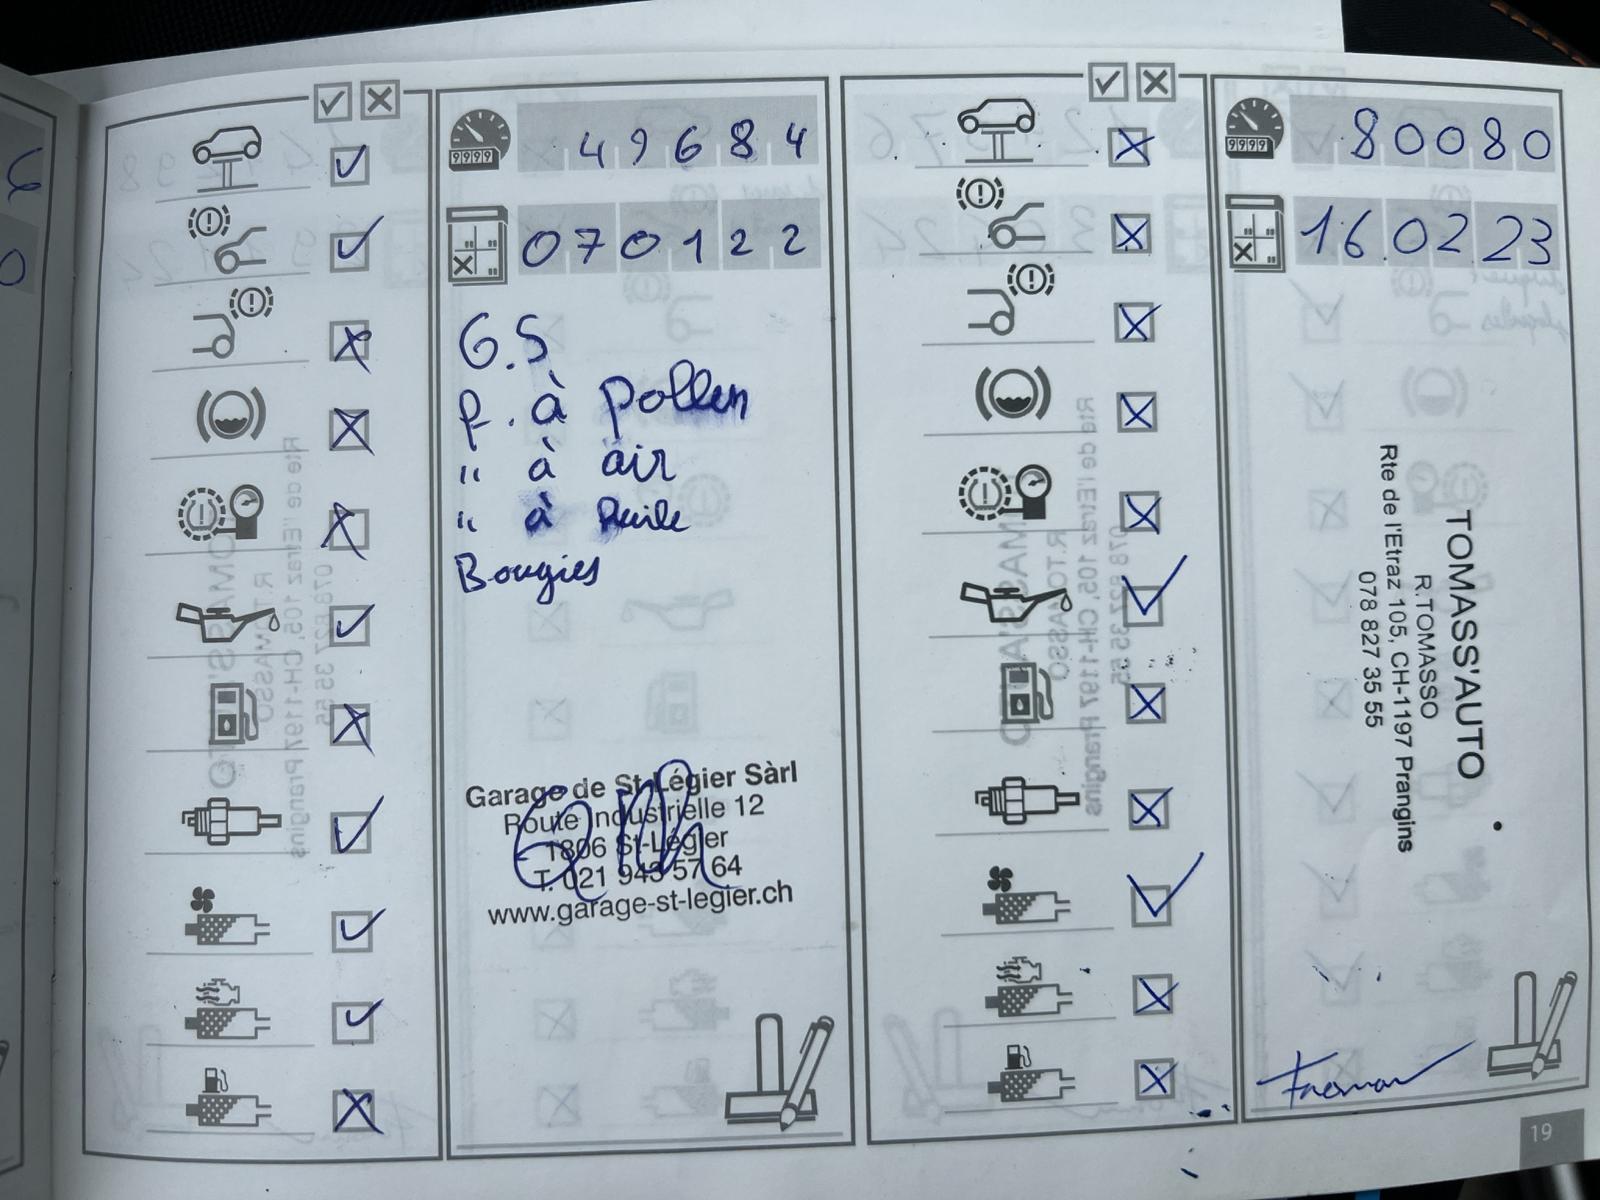 49684
070122
G.S
f. à pollen
" à air
" à huile
Bougies
Garage de St-Légier Sàrl
Route Industrielle 12
1806 St-Légier
T. 021 943 57 64
www.garage-st-legier.ch
80080
160223
TOMASS'AUTO
R.TOMASSO
Rte de l'Etraz 105, CH-1197 Prangins
078 827 35 55
19